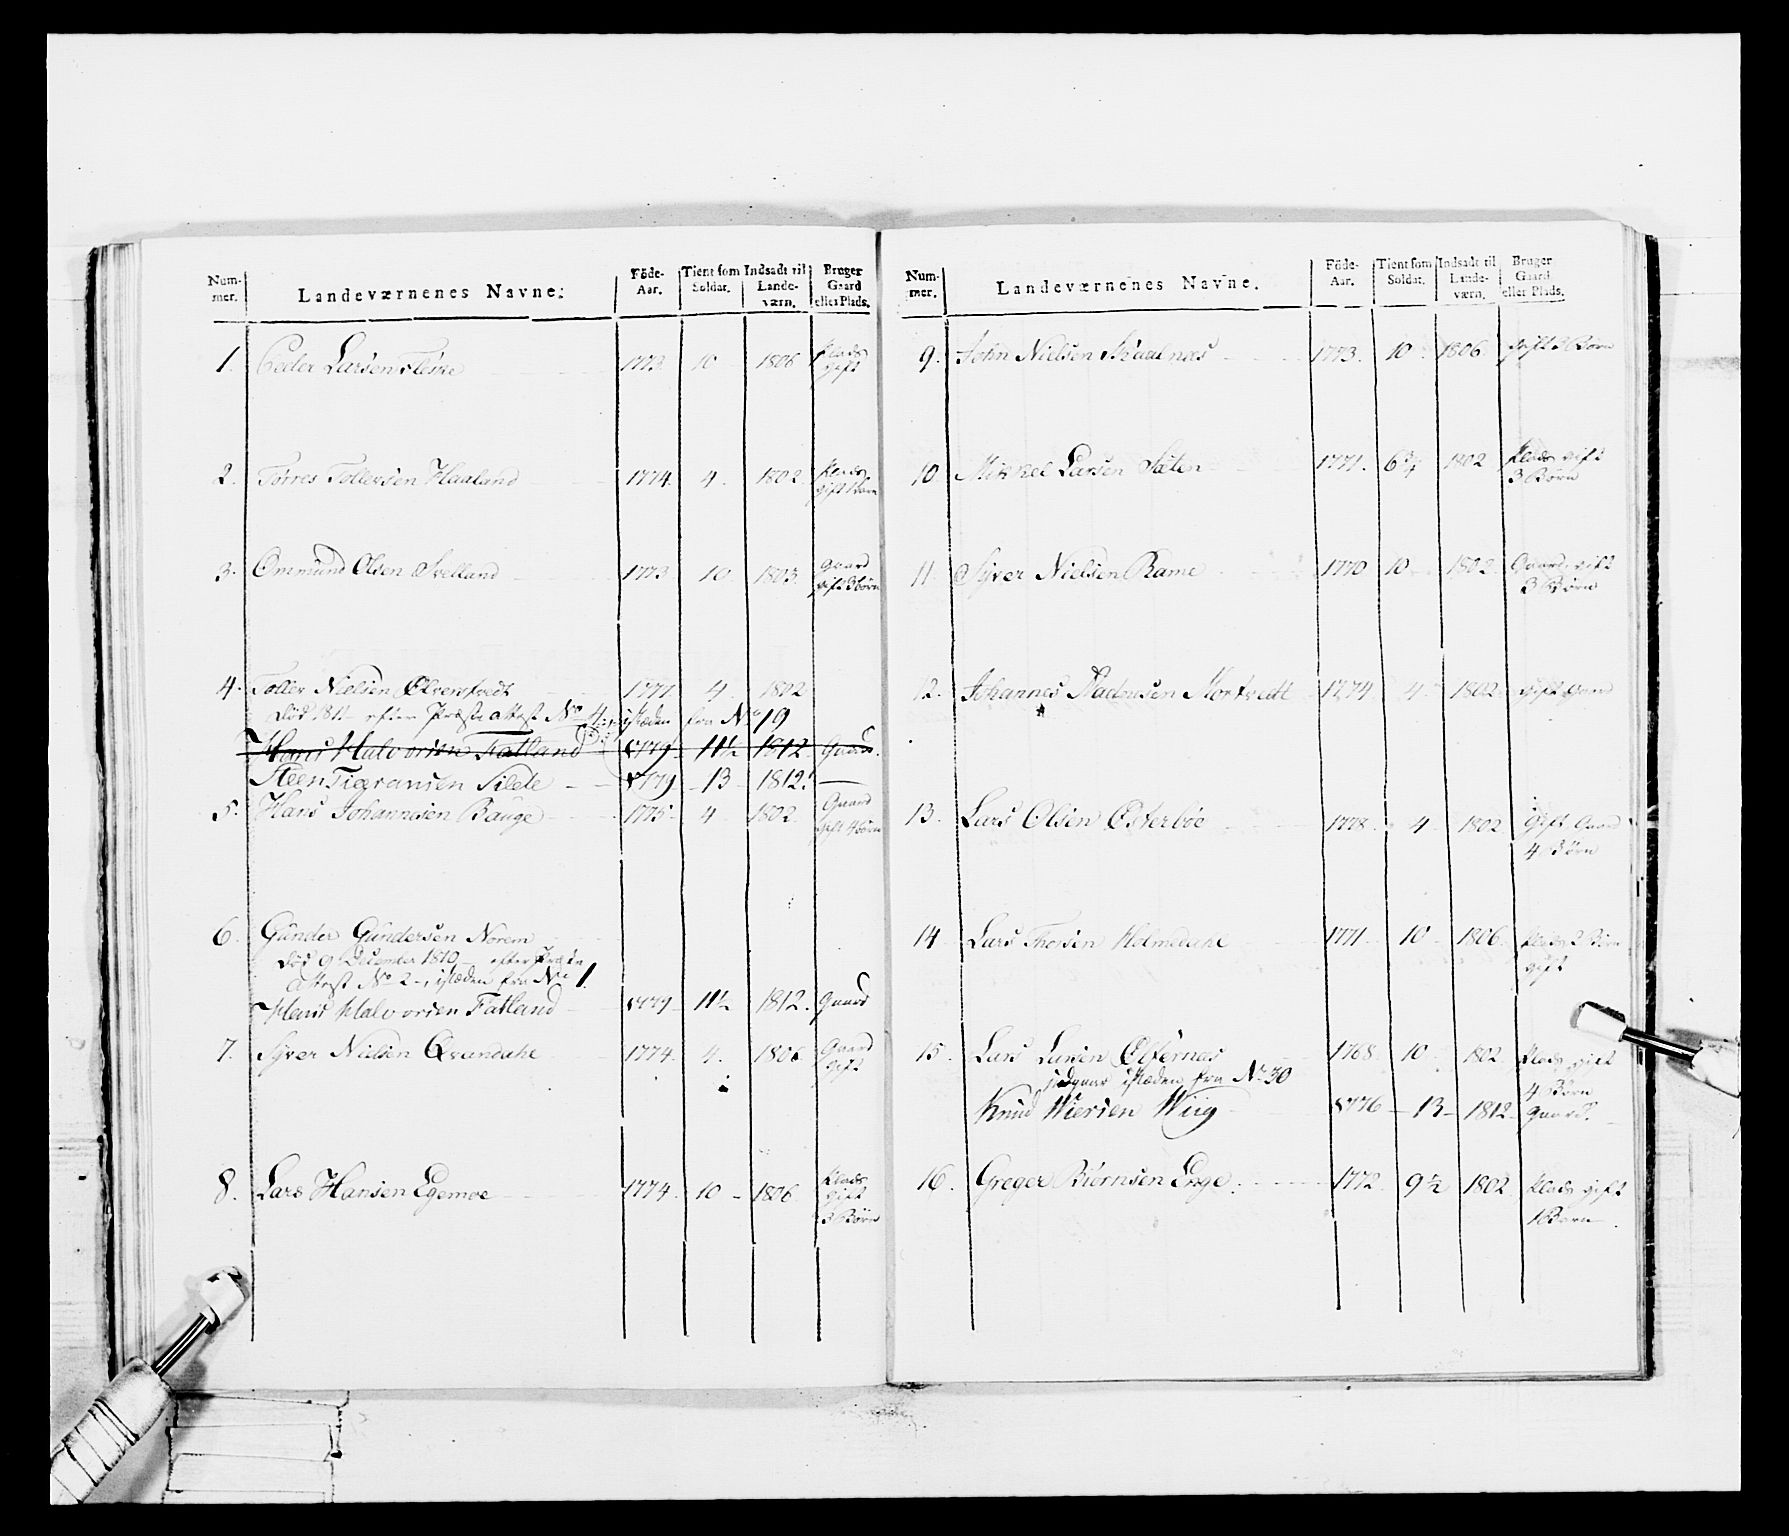 Num-
mer.
Landeværnenes Navne:
Föde-
Aar.
Tient som
Soldat.
Indsadt til
Lande-
værn.
Bruger
Gaard
eller Plads.
1. Peder Larsen 1773. 10 1806 Plads
gift
2. Torres Tollersen Haaland 1774. 4. 1802. Plads
gift 1 Barn
3. Ommund Olsen Svelland 1773 10 1803. Gaard
gift 3 børn
4. Toller Nielsen 1777 4. 1802
död 1811 efter Præste attest No 4, istæden fra No 19
Hans Halvorsen Fatland 1779 11½ 1812 Gaard.
Steen Tiøransen Silete 1779 13 1812.
5. Hans Johannesen Bauge 1775. 4 1802. Gaard
gift 4 börn
6. Gunder Gundersen Norem
död 9 December 1810 efter Præste
attest No 2, istæden fra No 1.
Hans Halvorsen Fatland 1779 11½ 1812. Gaard
7. Syver Nielsen Qvandahl 1774. 4. 1806 Gaard
gift
8. Lars Hansen Egemoe 1774. 10 1806 Plads
gift
3 Börn
Num-
mer.
Landeværnenes Navne.
Föde-
Aar.
Tient som
Soldat.
Indsadt til
Lande-
værn.
Bruger
Gaard
eller Plads.
9. John Nielsen 1773. 10 1806 gift 3 Börn
10 Mikkel Larsen Sæten 1771. 6 1802 Plads gift
3 Börn
11 Syver Nielsen Rame 1770 10 1802 Gaard gift
3 Börn
12. Johannes Madensen Mortvedt 1774 4. 1802 gift Gaard
13. Lars Olsen Østerböe 1778. 4. 1802 Gift Gaard
4 Börn
14 Lars Thorsen Holmedahl 1771 10 1806. Plads 2 Börn
gift
15. Lars Larsen Ølfernæs 1768 10 1802 Plads gift
4 Börn
udgaar istæden fra No 30
Knud Wiersen Wiig 1776 13 1812 Gaard.
16. Greger Biörnsen Enge. 1772 9½ 1802 Plads gift
1 Barn